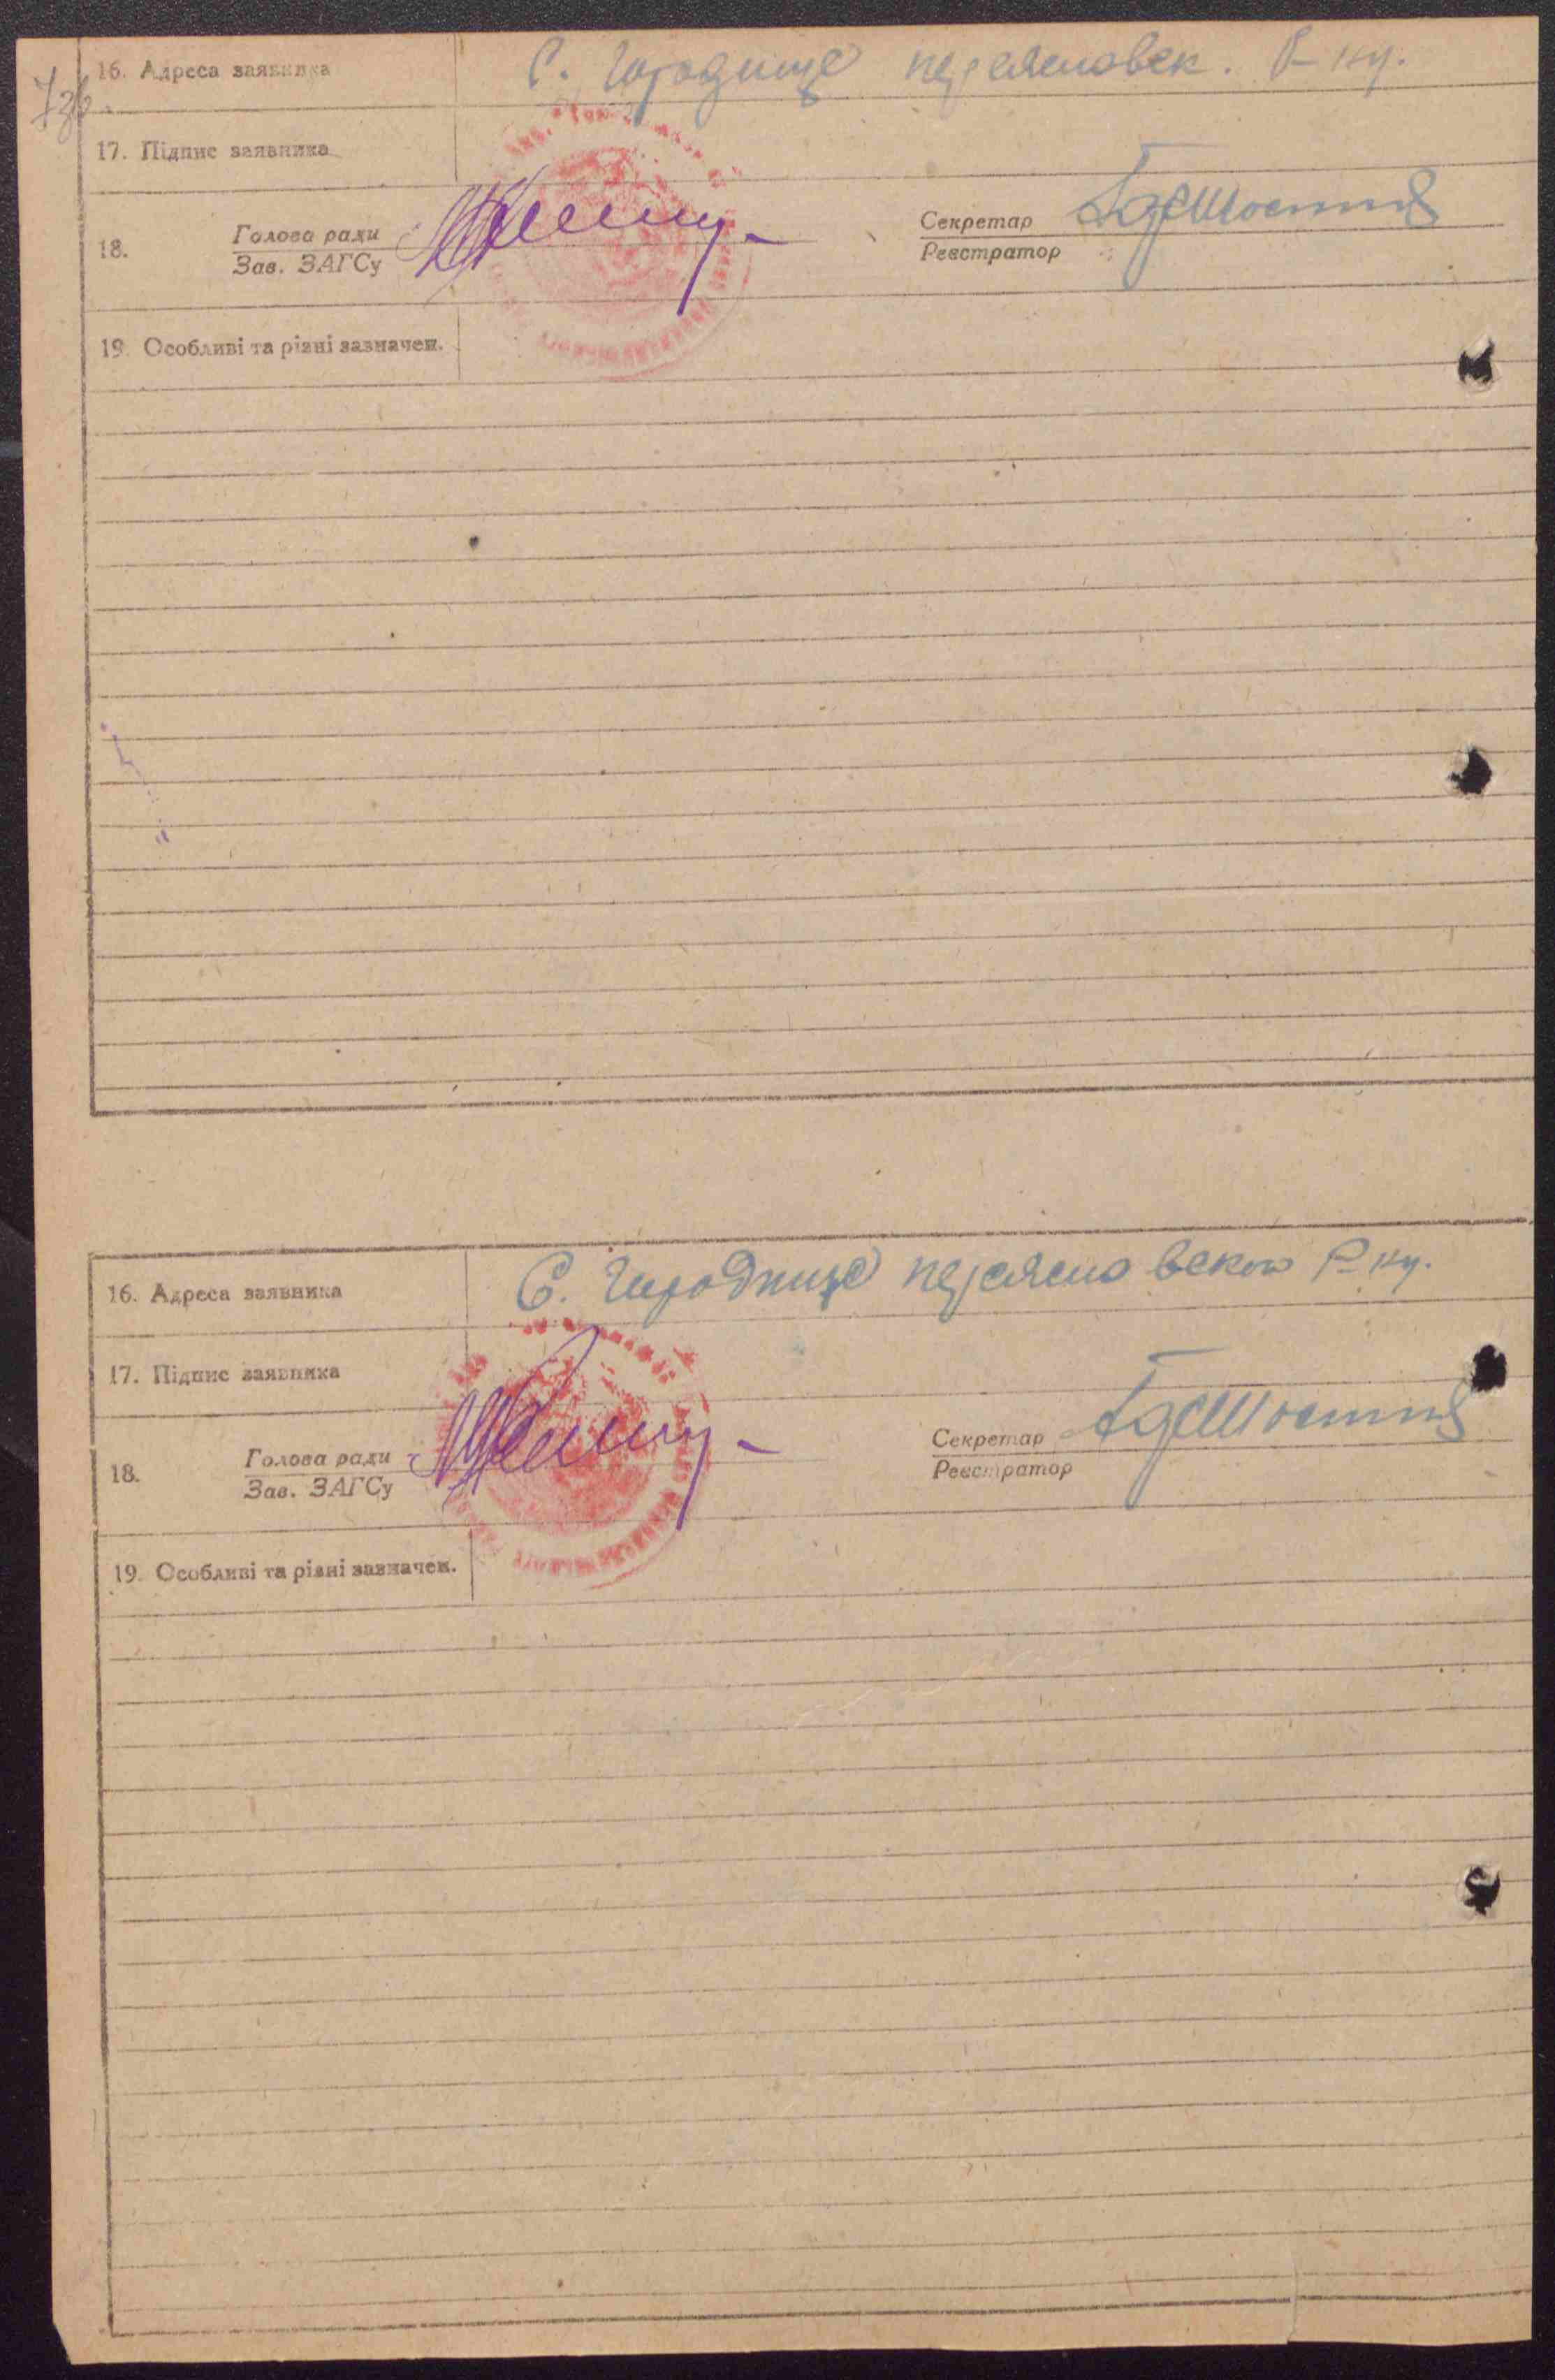 16. Адреса заявника С. Городище переяславск. Р-ну.
17. Підпис заявника
18. Голова ради Секретар
Зав. ЗАГСу Реєстратор
19. Особливі та різні зазначен.
16. Адреса заявника С. Городище Р-ну.
17. Підпис заявника
18. Голова ради Секретар
Зав. ЗАГСу Реєстратор
19. Особливі та різні зазначен.